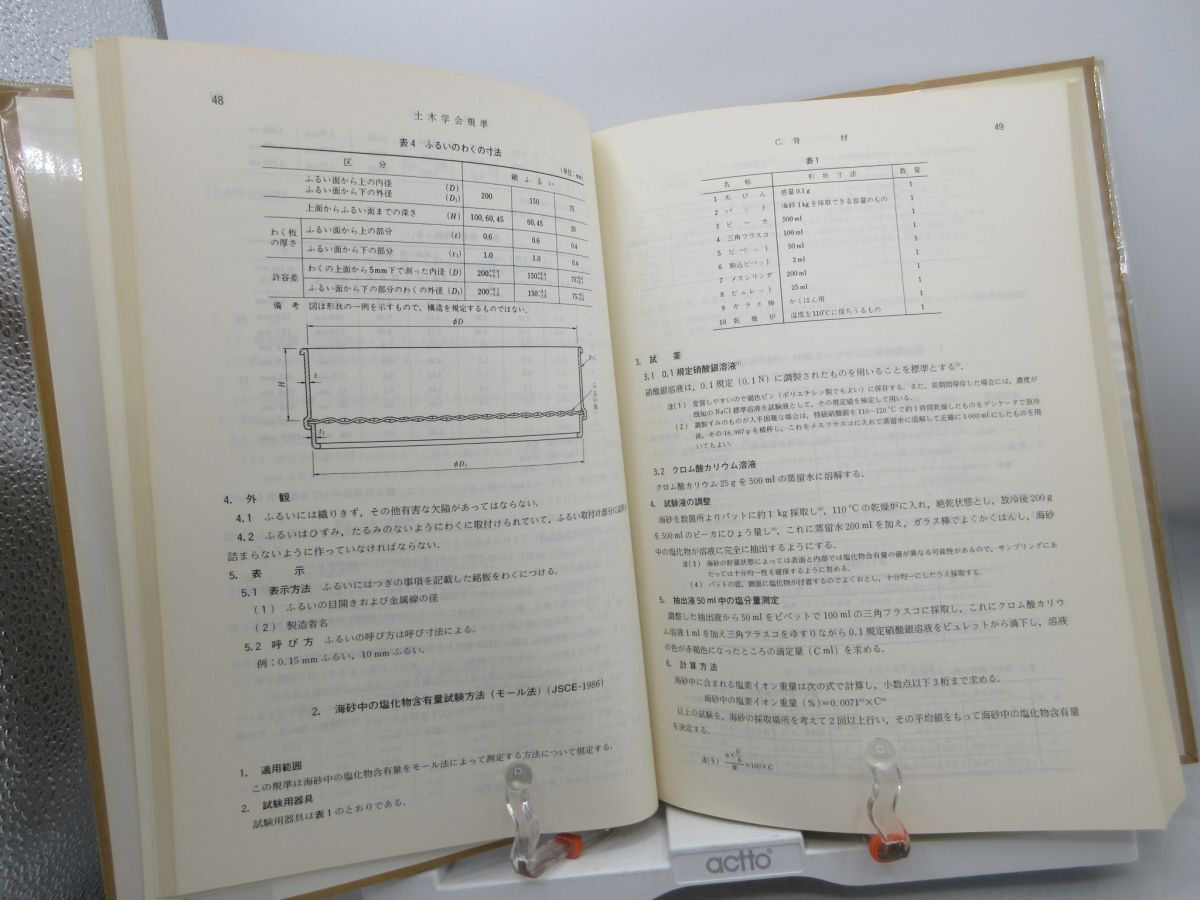 48
土木学会規準
表4 ふるいのわくの寸法
(単位:mm)
区 分
網ふるい
ふるい面から上の内径 (D)
ふるい面から下の外径 (D₁)
200 150 75
上面からふるい面までの深さ (H) 100,60,45 60,45 20
わく板の厚さ
ふるい面から上の部分 (t) 0.6 0.6 0.4
ふるい面から下の部分 (t₁) 1.0 1.0 0.4
許容差
わくの上面から5mm下で測った内径 (D) 200 150 75
ふるい面から下の部分のわくの外径 (D₁) 200 150 75
備 考 図は形状の一例を示すもので,構造を規定するものではない.
φD
H
t
わく
ふるい面
t₁
φD₁
4. 外 観
4.1 ふるいには織りきず,その他有害な欠陥があってはならない.
4.2 ふるいはひずみ,たるみのないようにわくに取付けられていて,ふるい取付け部分に試料が
詰まらないように作っていなければならない.
5. 表 示
5.1 表示方法 ふるいにはつぎの事項を記載した銘板をわくにつける.
(1) ふるいの目開きおよび金属線の径
(2) 製造者名
5.2 呼び方 ふるいの呼び方は呼び寸法による.
例:0.15mmふるい,10mmふるい.
2. 海砂中の塩化物含有量試験方法(モール法)(JSCE-1986)
1. 適用範囲
この規準は海砂中の塩化物含有量をモール法によって測定する方法について規定する.
2. 試験用器具
試験用器具は表1のとおりである.
49
C. 骨 材
表1
名 称 形 状 寸 法 数 量
1 天びん 感量0.1g 1
2 バット 海砂1kgを採取できる容量のもの 1
3 ビーカ 500ml 1
4 三角フラスコ 100ml 1
5 ピペット 50ml 1
6 駒込ピペット 2ml 1
7 メスシリンダ 200ml 1
8 ビュレット 25ml 1
9 ガラス棒 かくはん用 1
10 乾燥炉 温度を110℃に保ちうるもの 1
3. 試 薬
3.1 0.1規定硝酸銀溶液⁽¹⁾
硝酸銀溶液は,0.1規定(0.1N)に調製されたものを用いることを標準とする⁽²⁾.
注(1) 変質しやすいので褐色ビン(ポリエチレン製でもよい)に保存する.また,長期間保存した場合には,濃度が
既知のNaCl標準溶液を試験液として,その規定値を検定して用いる.
(2) 調製ずみのものが入手困難な場合は,特級硝酸銀を110~120℃で約1時間乾燥したものをデシケータで放冷
後,その16.987gを精秤し,これをメスフラスコに入れて蒸留水に溶解して正確に1000mlにしたものを用
いてもよい.
3.2 クロム酸カリウム溶液
クロム酸カリウム25gを500mlの蒸留水に溶解する.
4. 試験液の調整
海砂を数箇所よりバットに約1kg採取し⁽³⁾,110℃の乾燥炉に入れ,絶乾状態とし,放冷後200g
を500mlのビーカにひょう量し⁽⁴⁾,これに蒸留水200mlを加え,ガラス棒でよくかくはんし,海砂
中の塩化物が溶液に完全に抽出するようにする.
注(3) 海砂の貯蔵状態によっては表面と内部では塩化物含有量の値が異なる可能性があるので,サンプリングにあ
たっては十分均一性を確保するように努める.
(4) バットの底,側面に塩化物が付着するのでよくおとし,十分均一にしたうえ採取する.
5. 抽出液50ml中の塩分量測定
調整した抽出液から50mlをピペットで100mlの三角フラスコに採取し,これにクロム酸カリウ
ム溶液1mlを加え三角フラスコをゆすりながら0.1規定硝酸銀溶液をビュレットから滴下し,溶液
の色が赤褐色になったところの滴定量(Cml)を求める.
6. 計算方法
海砂中に含まれる塩素イオン重量は次の式で計算し,小数点以下3桁まで求める.
海砂中の塩素イオン重量(%)=0.0071⁽⁵⁾×C⁽⁶⁾
以上の試験を,海砂の採取場所を考えて2回以上行い,その平均値をもって海砂中の塩化物含有量
を決定する.
注(5) a×b'/b / W ×100×C
actto